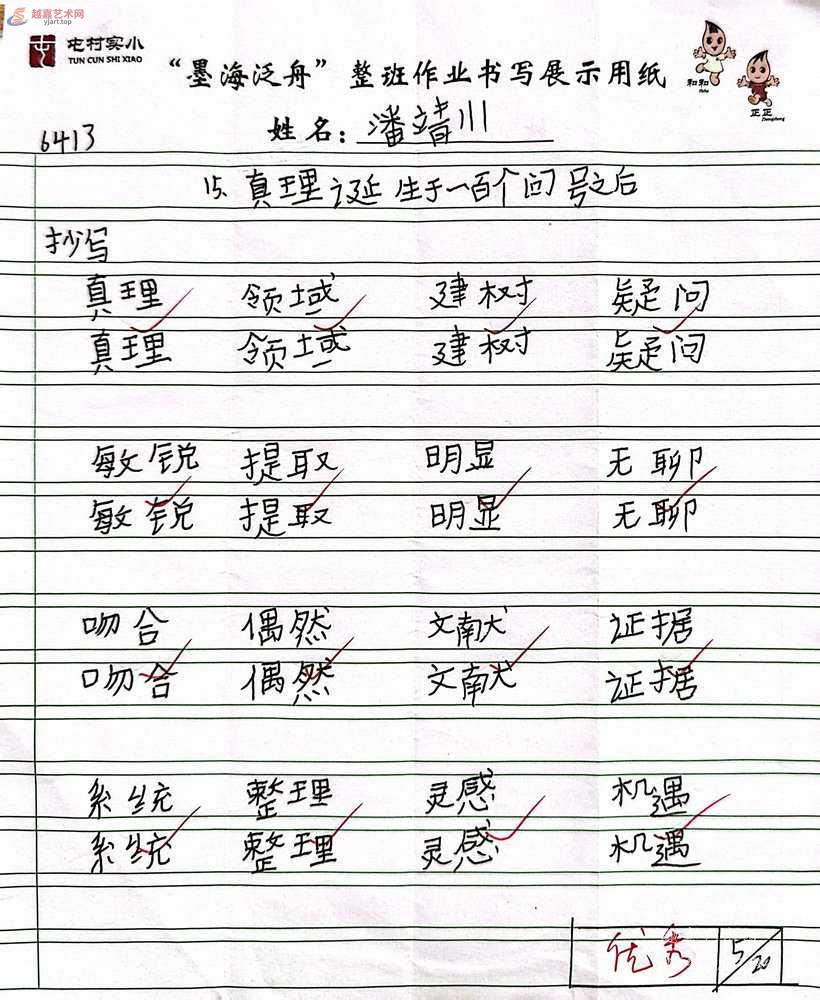 越嘉艺术网
yjart.top
屯村实小
TUN CUN SHI XIAO
“墨海泛舟”整班作业书写展示用纸
和和
Hehe
正正
Zhengzheng
6413
姓名：潘靖川
15. 真理诞生于一百个问号之后
抄写
真理 领域 建树 疑问
真理 领域 建树 疑问
敏锐 提取 明显 无聊
敏锐 提取 明显 无聊
吻合 偶然 文献 证据
吻合 偶然 文献 证据
系统 整理 灵感 机遇
系统 整理 灵感 机遇
优秀 5/20